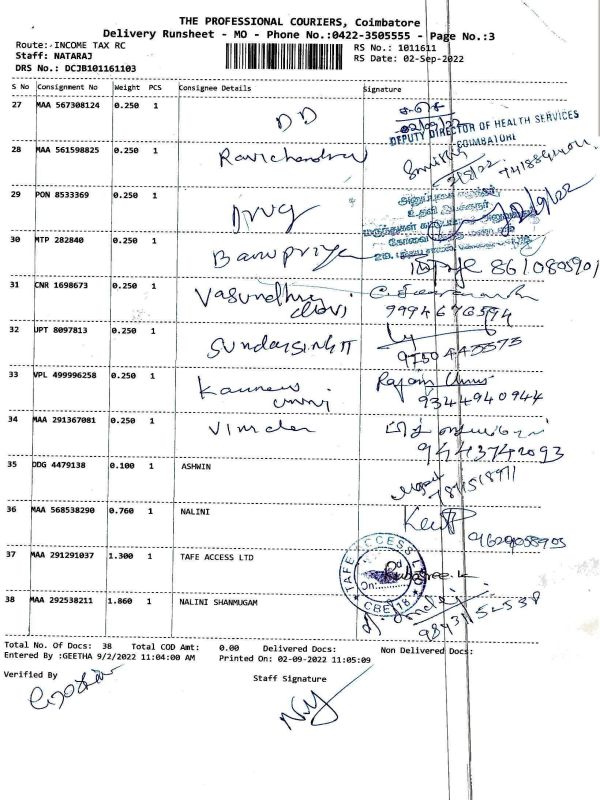 THE PROFESSIONAL COURIERS, Coimbatore
Delivery Runsheet - MO - Phone No.:0422-3505555 - Page No.:3
Route:-INCOME TAX RC
Staff: NATARAJ
DRS No.: DCJB101161103
RS No.: 1011611
RS Date: 02-Sep-2022
S No Consignment No Weight PCS Consignee Details Signature
27 MAA 567308124 0.250 1 DD
02/09/22
DEPUTY DIRECTOR OF HEALTH SERVICES
COIMBATORE
28 MAA 561598825 0.250 1 Ravichandran
29 PON 8533369 0.250 1 Drug
உதவி இயக்குநர்
30 MTP 282840 0.250 1 Banupriya
31 CNR 1698673 0.250 1 Vasundhra Devi
99946 76594
32 JPT 8097813 0.250 1 SundarsingH
33 VPL 499996258 0.250 1
9344940944
34 MAA 291367081 0.250 1
9443742093
35 DDG 4479138 0.100 1 ASHWIN
36 MAA 568538290 0.760 1 NALINI
37 MAA 291291037 1.300 1 TAFE ACCESS LTD
TAFE ACCESS LTD
On:
CBE 18
38 MAA 292538211 1.860 1 NALINI SHANMUGAM
98431 52538
Total No. Of Docs: 38 Total COD Amt: 0.00 Delivered Docs: Non Delivered Docs:
Entered By :GEETHA 9/2/2022 11:04:00 AM Printed On: 02-09-2022 11:05:09
Verified By
Staff Signature